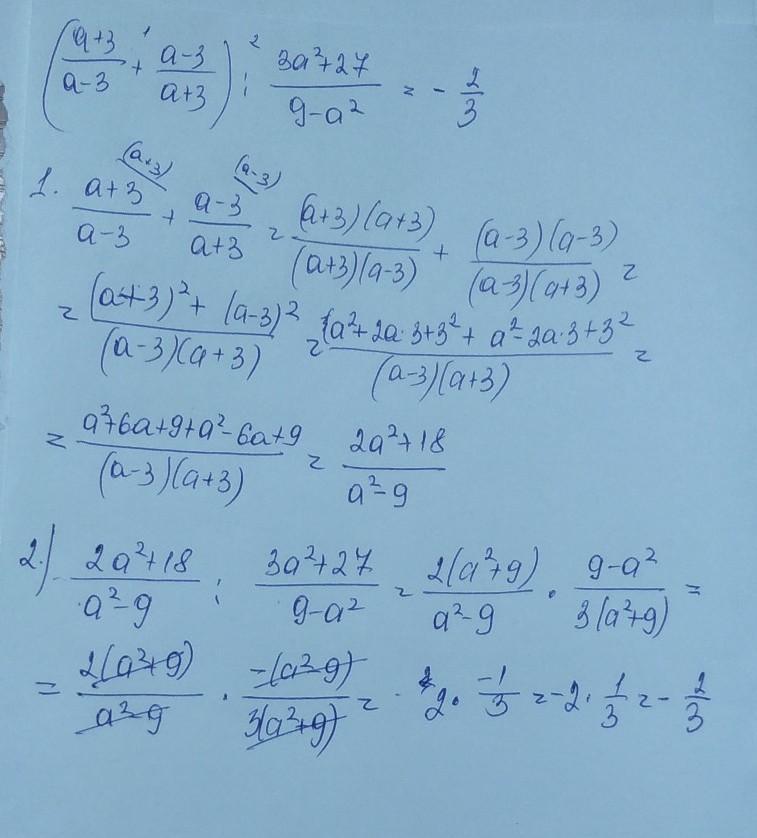 ( (a+3)/(a-3) +¹ (a-3)/(a+3) ) :² (3a²+27)/(9-a²) = - 2/3
1. (a+3)/(a-3) ^(a+3) + (a-3)/(a+3) ^(a-3) = ((a+3)(a+3))/((a+3)(a-3)) + ((a-3)(a-3))/((a-3)(a+3)) =
= ((a+3)² + (a-3)²)/((a-3)(a+3)) = (a²+2a·3+3² + a²-2a·3+3²)/((a-3)(a+3)) =
= (a²+6a+9+a²-6a+9)/((a-3)(a+3)) = (2a²+18)/(a²-9)
2.) (2a²+18)/(a²-9) : (3a²+27)/(9-a²) = (2(a²+9))/(a²-9) · (9-a²)/(3(a²+9)) =
= (2(a²+9))/(a²-9) · (-(a²-9))/(3(a²+9)) = 2· (-1)/3 = -2· 1/3 = - 2/3